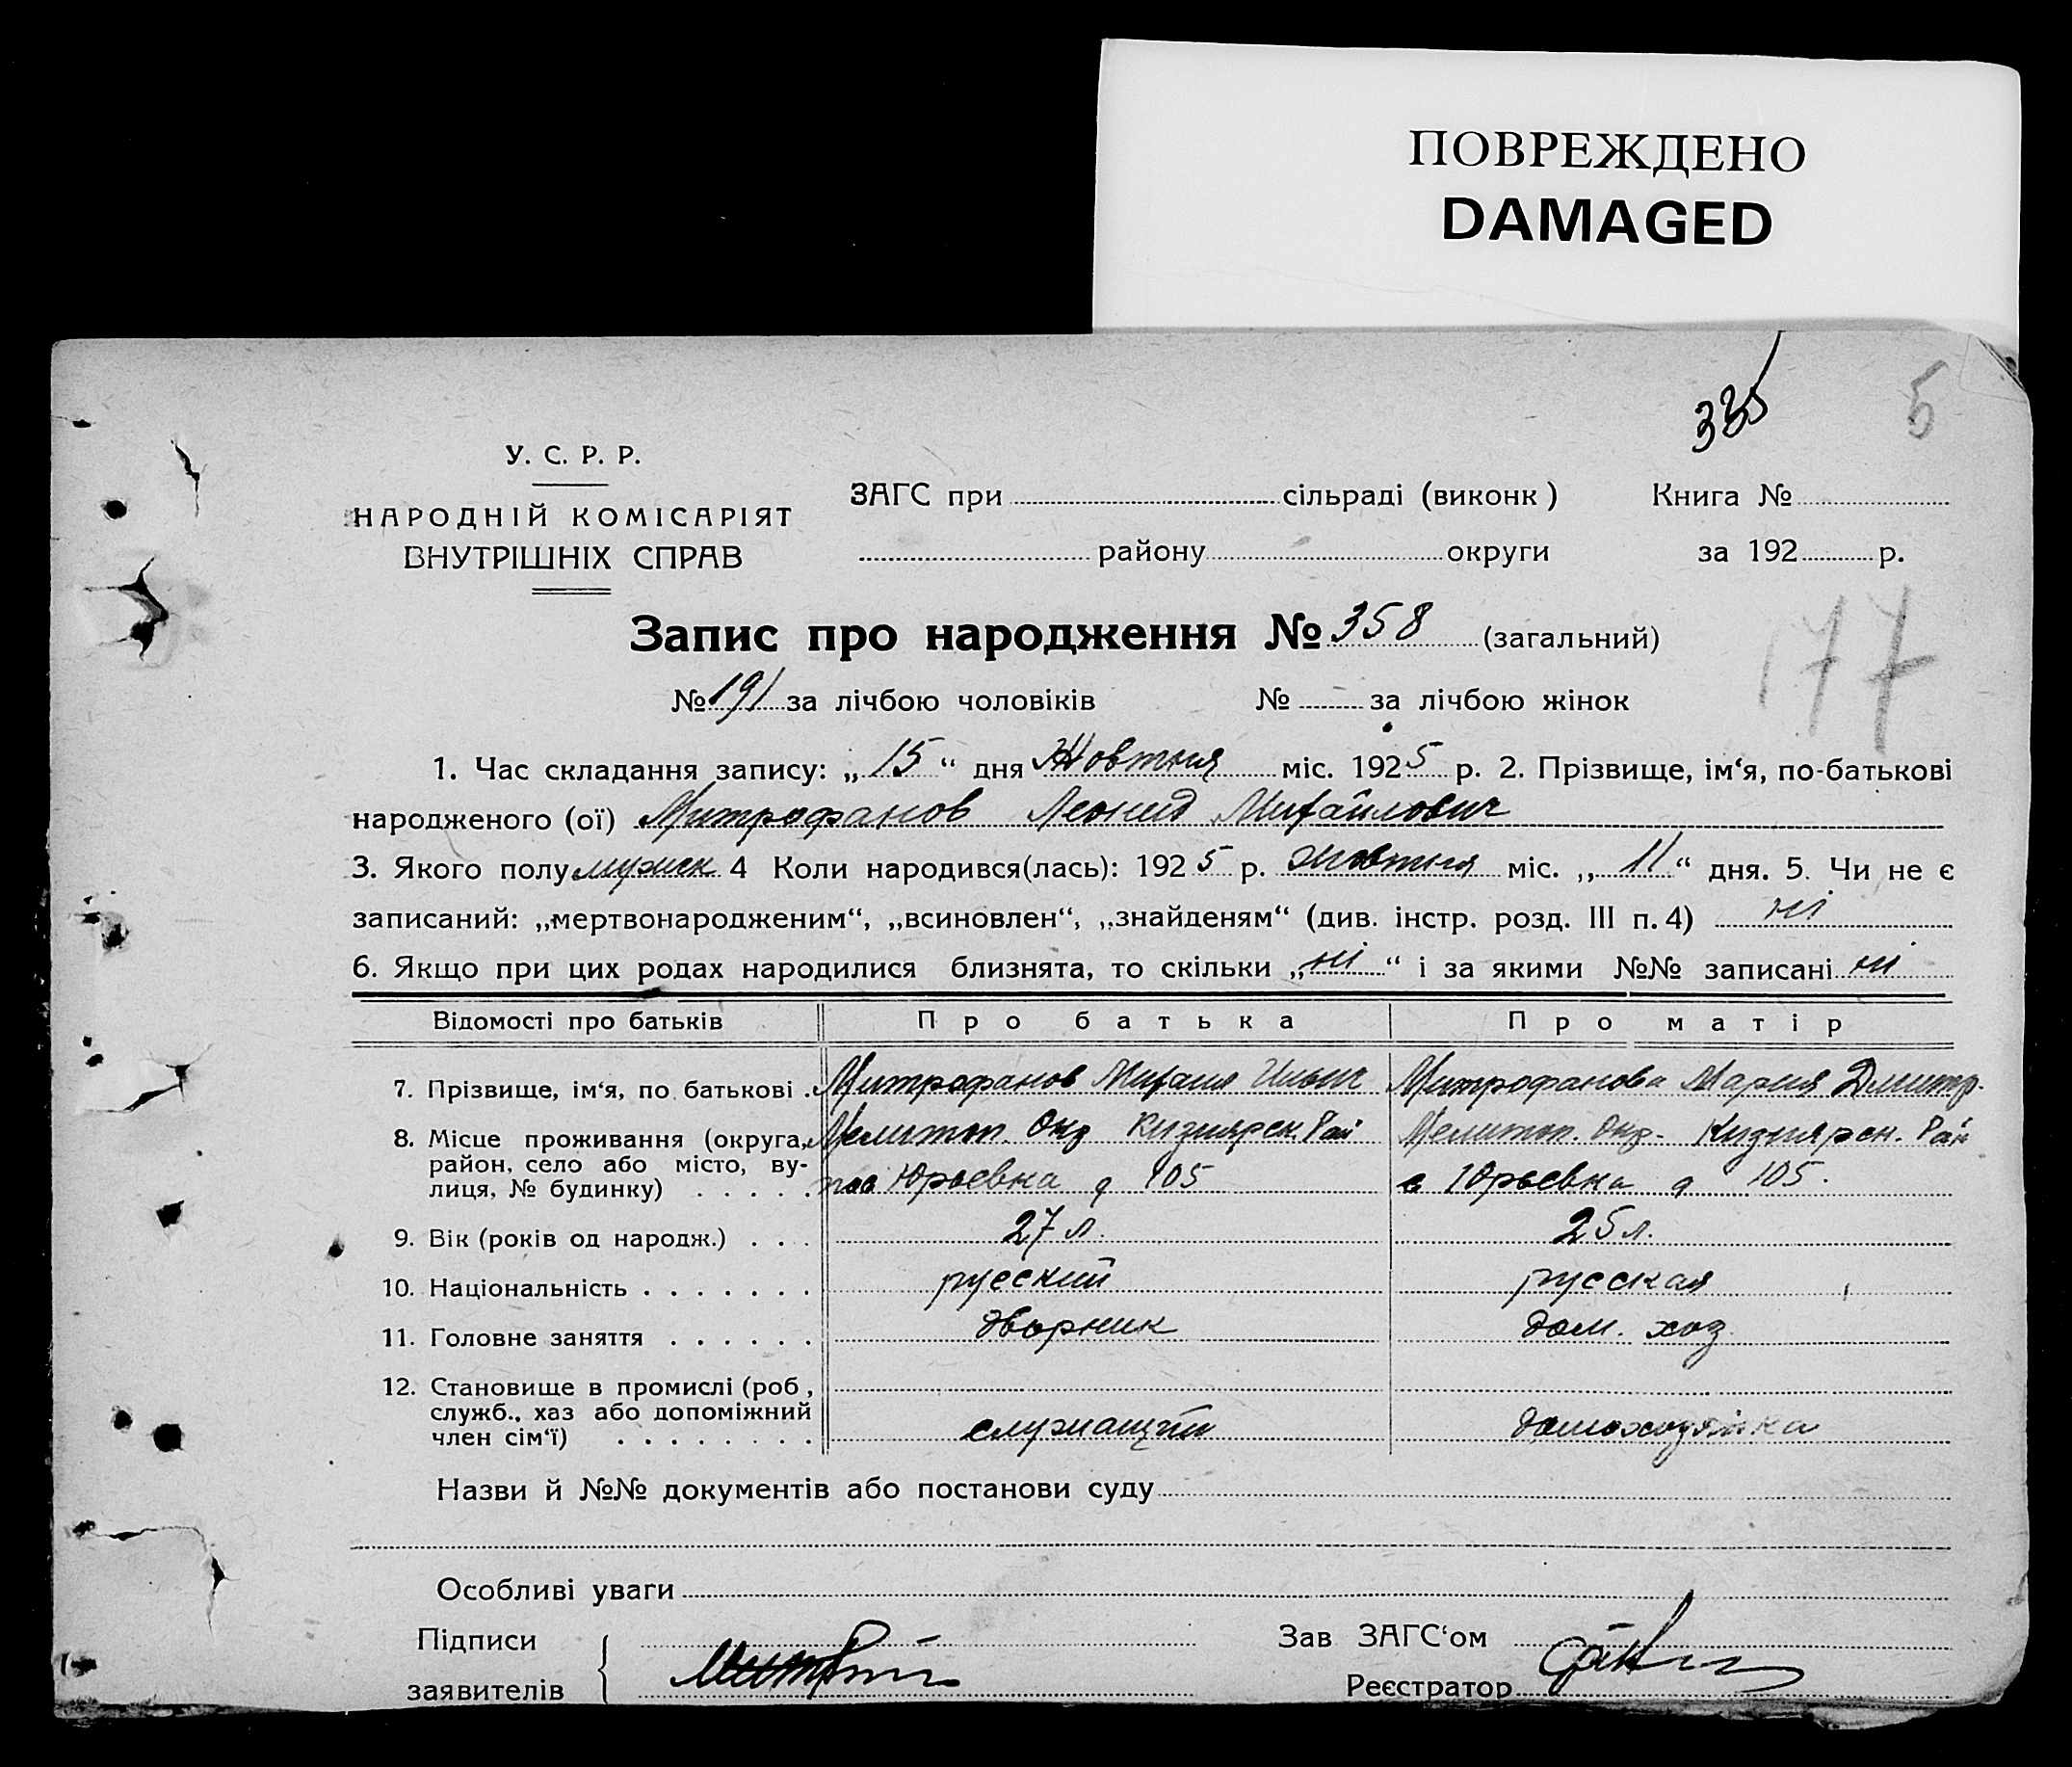 ПОВРЕЖДЕНО
DAMAGED
335 5
У. С. Р. Р.
НАРОДНІЙ КОМІСАРІЯТ
ВНУТРІШНІХ СПРАВ
ЗАГС при сільраді (виконк)
району округи
Книга №
за 192 р.
Запис про народження № 358 (загальний)
177
№ 191 за лічбою чоловіків № за лічбою жінок
1. Час складання запису: „15“ дня Жовтня міс. 1925 р. 2. Прізвище, ім‘я, по-батькові
народженого (ої) Митрофанов Леонид Михайлович
3. Якого полу мужск 4 Коли народився(лась): 1925 р. жовтня міс. „11“ дня. 5. Чи не є
записаний: „мертвонародженим“, „всиновлен“, „знайденям“ (див. інстр. розд. III п. 4) ні
6. Якщо при цих родах народилися близнята, то скільки „ні“ і за якими №№ записані ні
Відомості про батьків Про батька Про матір
7. Прізвище, ім‘я, по батькові . Митрофанов Михаил Ильич Митрофанова Мария Дмитр.
8. Місце проживання (округа, Мелитоп. Окр Кизиярск. Рай Мелитоп. Окр. Кизиярск. Рай
район, село або місто, ву-
лиця, № будинку) . . . . . пос Юрьевка д 105 с Юрьевка д 105.
9. Вік (років од народж.) . . . 27 л. 25 л.
10. Національність . . . . . . . русский русская
11. Головне заняття . . . . . . дворник дом. хоз
12. Становище в промислі (роб,
служб., хаз або допоміжний
член сім‘ї) . . . . . . . . служащий домохозяйка
Назви й №№ документів або постанови суду
Особливі уваги
Підписи
заявителів
Зав ЗАГС‘ом
Реєстратор